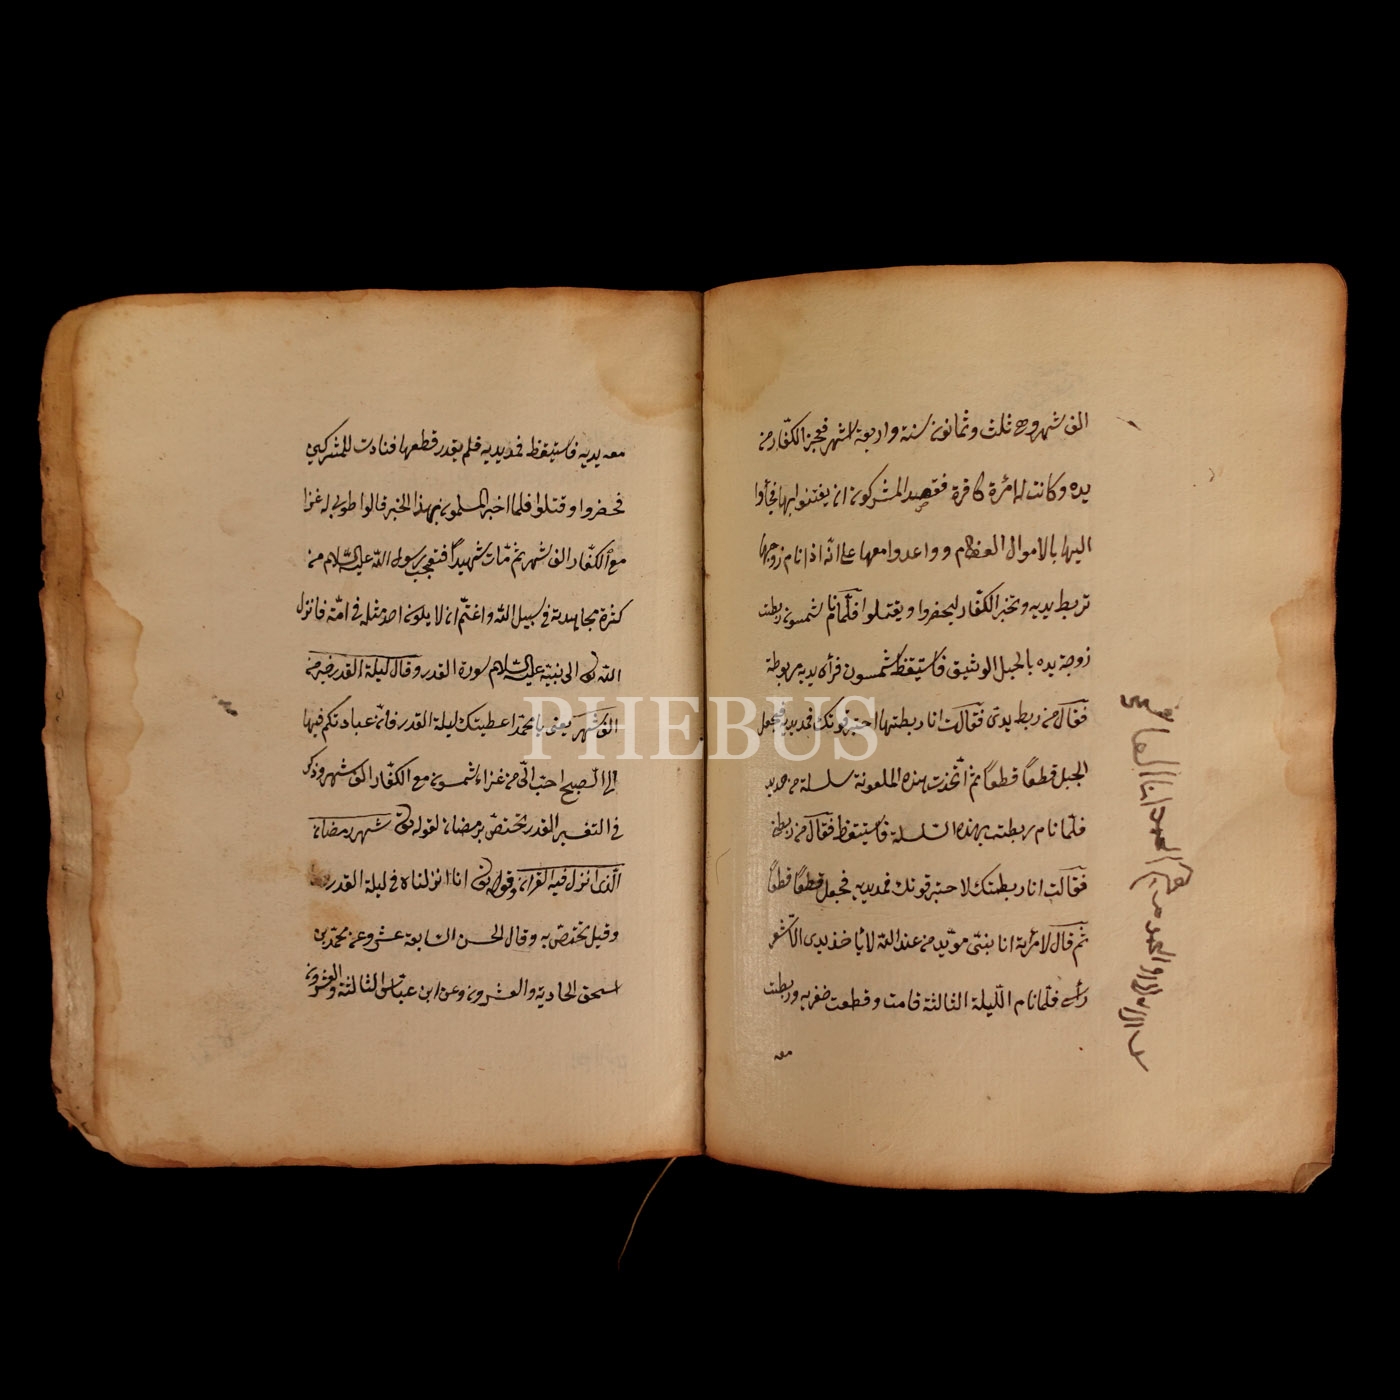 الف شهر وهى ثلث وثمانون سنة واربعة اشهر فعجز الكفار من
يده وكانت له امرأة كافرة فقصد المشركون ان يفتنوا بها فجاؤا
اليها بالاموال العظام وواعدوا معها على انه اذا نام زوجها
تربط يديه وتخبر الكفار ليحضروا ويقتلوا فلما نام شمسون ربطت
زوجة يده بالحبل الوثيق فاستيقظ شمسون فرأه يديه مربوطة
فقال من ربط يدى فقالت انا ربطتها اختبر قوتك فمد يديه فجعل
الحبل قطعًا قطعًا ثم اتخذت هذه الملعونة سلسلة من حديد
فلما نام ربطته بهذه السلسلة فاستيقظ فقال من ربطنى
فقالت انا ربطتك لاختبر قوتك فمد يديه فجعل قطعًا قطعًا
ثم قال لامرأته انا بنىّ مؤيد من عند الله لا يأخذ يدى الا شعر
رأسى فلما نام الليلة الثالثة قامت وقطعت ضفره وربطت
معه
معه يديه فاستيقظ فمد يديه فلم يقدر قطعها فنادت للمشركين
فحضروا وقتلوا فلما اخبر المسلمون بهذا الخبر قالوا طوبى له غزا
مع الكفار الف شهر ثم مات شهيدًا فتعجب رسول الله عليه السلام من
كثرة مجاهدته فى سبيل الله واغتم ان لا يكون احد مثله فى امته فانزل
الله تعالى الى نبيه عليه السلام سورة القدر وقال ليلة القدر خير من
الف شهر يعنى يا محمد اعطيتك ليلة القدر فان عبادتكم فيها
الى الصبح احب الى من غزاء شمسون مع الكفار الف شهر وذكر
فى التفسير القدر تختص برمضان لقوله تعالى شهر رمضان
الذى انزل فيه القرآن وقوله تعالى انا انزلناه فى ليلة القدر
وقيل تختص به وقال الحسن السابعة عشر وعن محمد بن
اسحق الحادية والعشرون وعن ابن عباس الثالثة والعشرون
PHEBUS